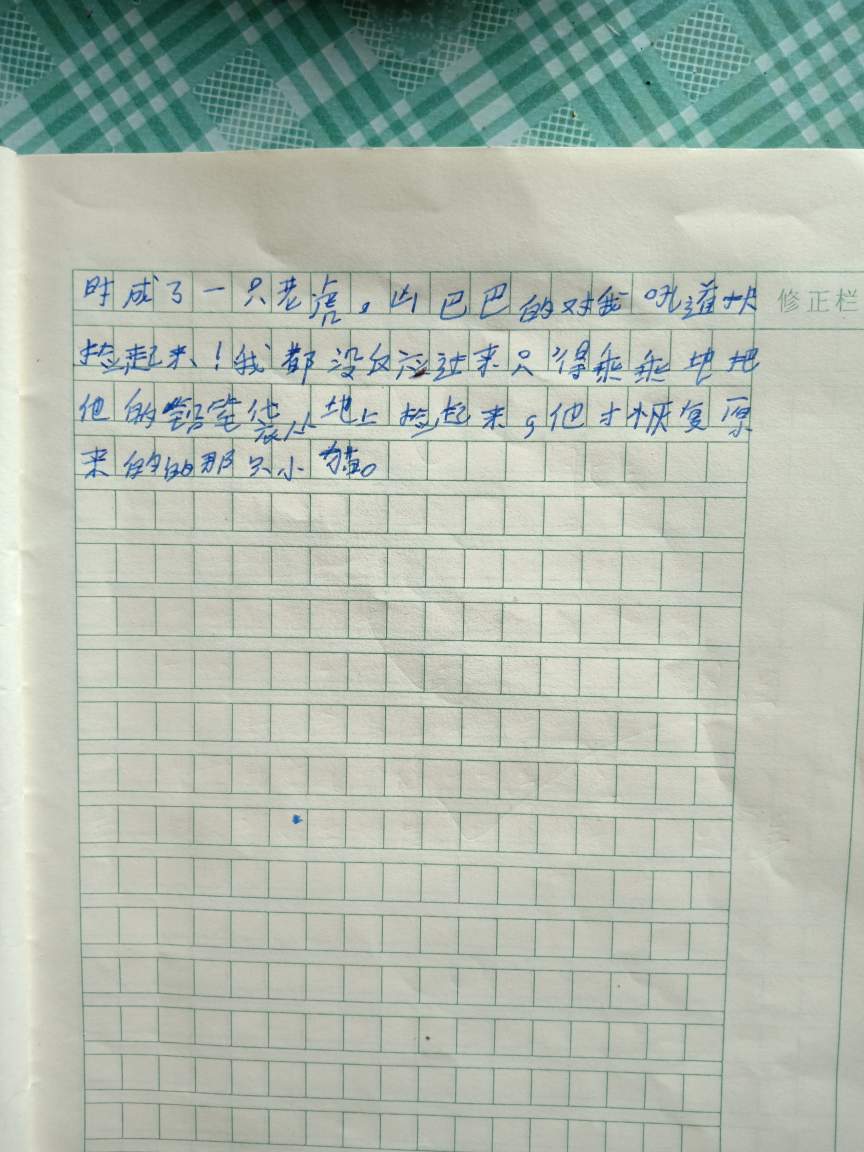 时成了一只老虎。凶巴巴的对我吼道快 修正栏
捡起来！我都没反应过来只得乖乖地把
他的铅笔袋从地上捡起来，他才恢复原
来的的那只小猫。